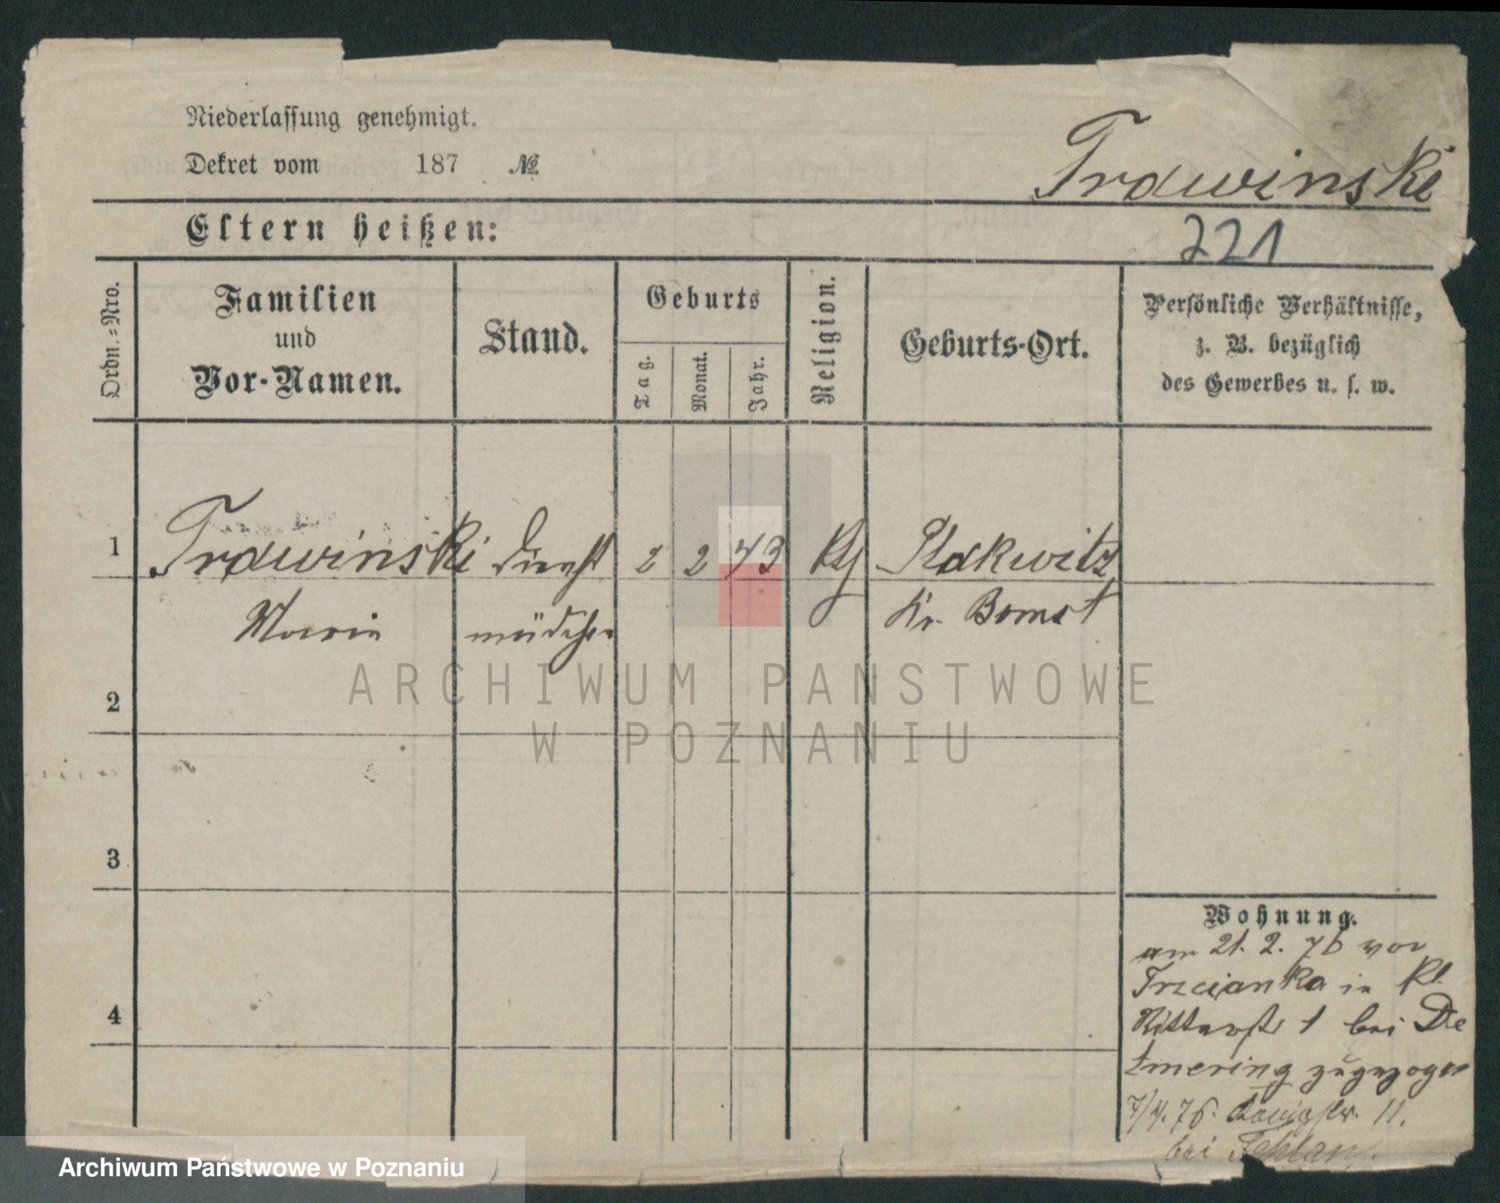 Niederlassung genehmigt.
Dekret vom 187 №
Trawinski
Eltern heißen:
221
Ordn.-Nro.
Familien
und
Vor-Namen.
Stand.
Geburts
Tag.
Monat.
Jahr.
Religion.
Geburts-Ort.
Persönliche Verhältnisse,
z. B. bezüglich
des Gewerbes u. s. w.
1
Trawinski Dienst 2 2 43 Kth
Kr. Bomst
Marie mädchen
ARCHIWUM PAŃSTWOWE
W POZNANIU
2
3
4
Wohnung.
am 21. 2. 76 von
Trzcianka in Kl.
Ritterstr 1 bei De
tmering zugezogen
7/4. 76. Königstr. 11.
bei
Archiwum Państwowe w Poznaniu